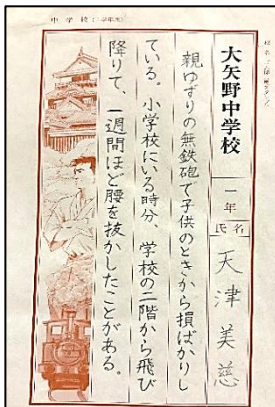 大矢野中学校 一年 氏名 天津美慈
親ゆずりの無鉄砲で子供のときから損ばかりし
ている。小学校にいる時分、学校の二階から飛び
降りて、一週間ほど腰を抜かしたことがある。
中学校